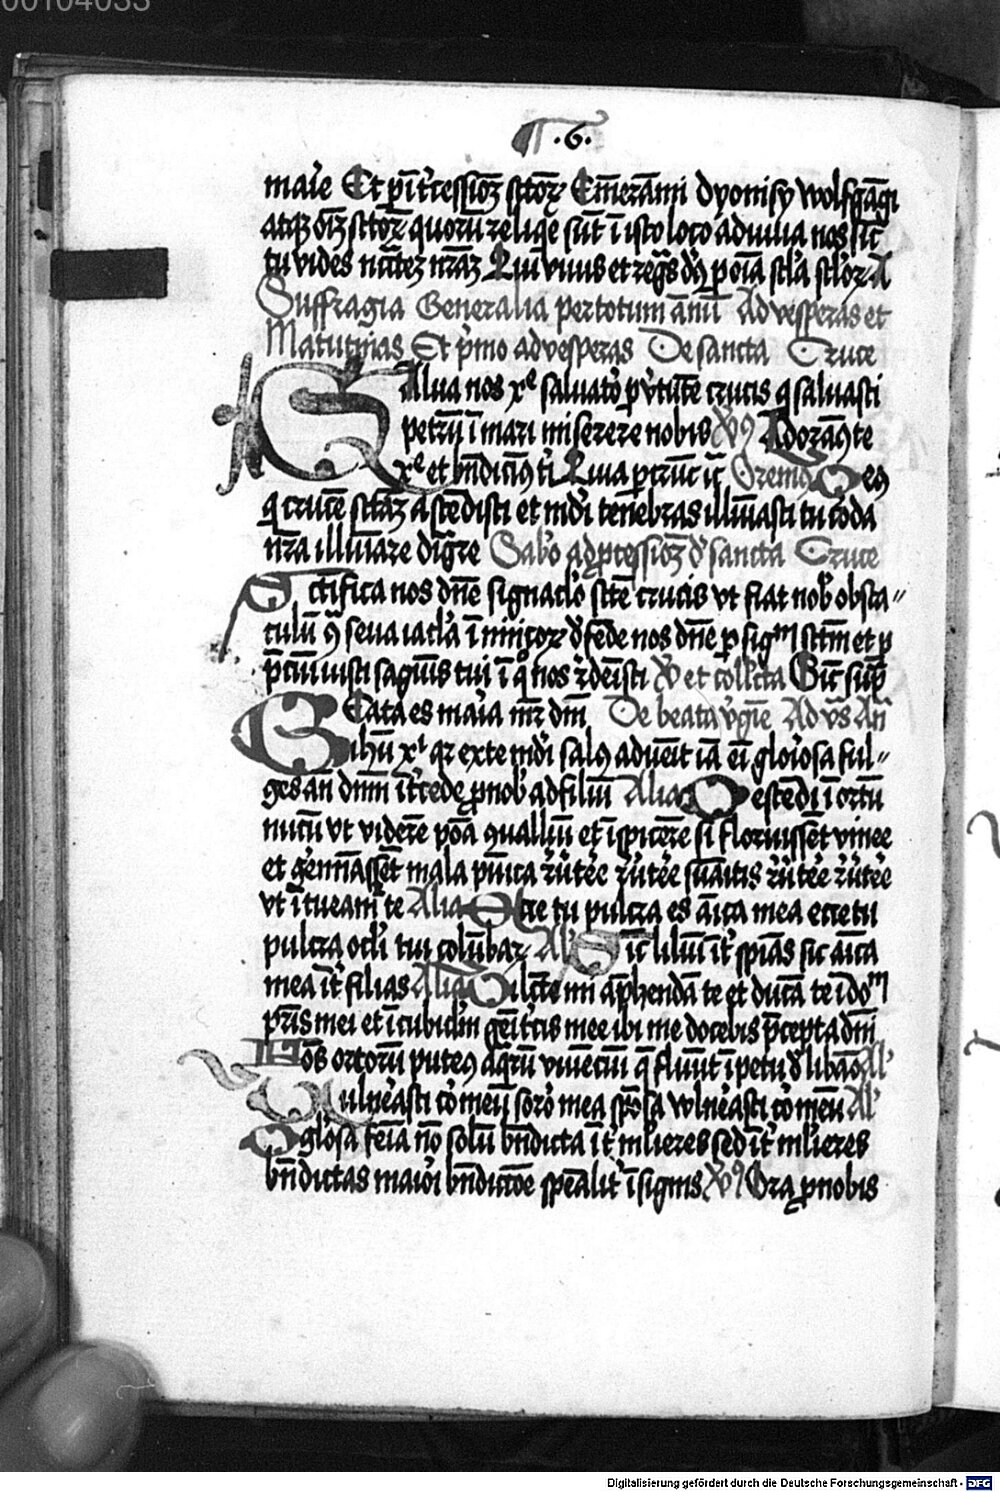 00104033
.6.
maīe Et p̄ īt̄cessiōꝫ sctōꝝ Em̄erām̄i dyonisy wolfgāgi
atqꝫ oīꝫ sctōꝝ quorū reliqe sūt ī isto loco adiuua nos sic̄
tu vides nc̄c̄teꝫ nr̄aꝫ Qui viuis et reg̅s dꝰ p oīa sc̄la sc̄loꝝ A
Suffragia Generalia per totum ānū Ad vesperas et
Matutinas Et p̄mo ad vesperas De sancta Cruce
SAlua nos xp̄e saluatōꝛ p v̄tutē crucis q saluasti
petrū ī mari miserere nobis Vꝰ Adoramꝰ te
xp̄e et bn̄dicimꝰ ti Quia p crucē Oremꝰ Deꝰ
q crucē sctāꝫ ascēdisti et mūdi tenēbras illuīasti tu coꝛda
nr̄a illuīare dig̅re Sabō ad p̄cessioꝫ d̄ sancta Cruce
Sctifica nos dn̄e signaclō sctē crucis vt fiat nob̄ obsta-
culū ꝯ seua iacla īimicoꝝ d̄fēde nos dn̄e p sigᵐ sctm̄ et p
p̄ciū iusti sagūis tui ī q̊ nos r̄demisti V̄ et collc̄ta Sic̄ sup̄
BEata es maīa De beata v̄gīe Ad vs̄ An̄
ihū xpī qꝛ ex te mūdi salꝰ aduēit iā eī gloīosa ful-
ges an̄ dn̄m īt̄cede p nob̄ ad filiū Alia Descēdi ī oꝛtū
nucū vt vidēre pōa ꝯualliū et īspicēre si floruissēt vinee
et gēmīassēt mala pūica r̄ūtēe r̄ūtēe sūaitis r̄ūtēe r̄ūtēe
vt ītueam̄ te Alia Ecce tu pulcra es aīca mea ecce tu
pulcra ocl̄i tui colūbaꝝ Al̄ Sic̄ liliū īt̄ spīas sic aīca
mea īt̄ filias Alia Dilc̄te mi ap̄hendā te et ducā te ī doᵐ
pr̄is mei et ī cubiclm̄ geīt̄cis mee ibi me docebis p̄cepta dn̄i
Fōs oꝛtoꝛū puteꝰ aq̄rū viuēciū q̄ fluūt īpetu d̄ libano Al̄
Vulnēasti coꝛ meū soꝛoꝛ mea spōsa vulnēasti coꝛ meū Al̄
O glōsa fēīa nō solū bn̄dicta īt̄ ml̄ieres sed īt̄ ml̄ieres
bn̄dictas maiōi bn̄dictōe spēalit̄ īsignis Vꝰ Ora p nobis
Digitalisierung gefördert durch die Deutsche Forschungsgemeinschaft - DFG